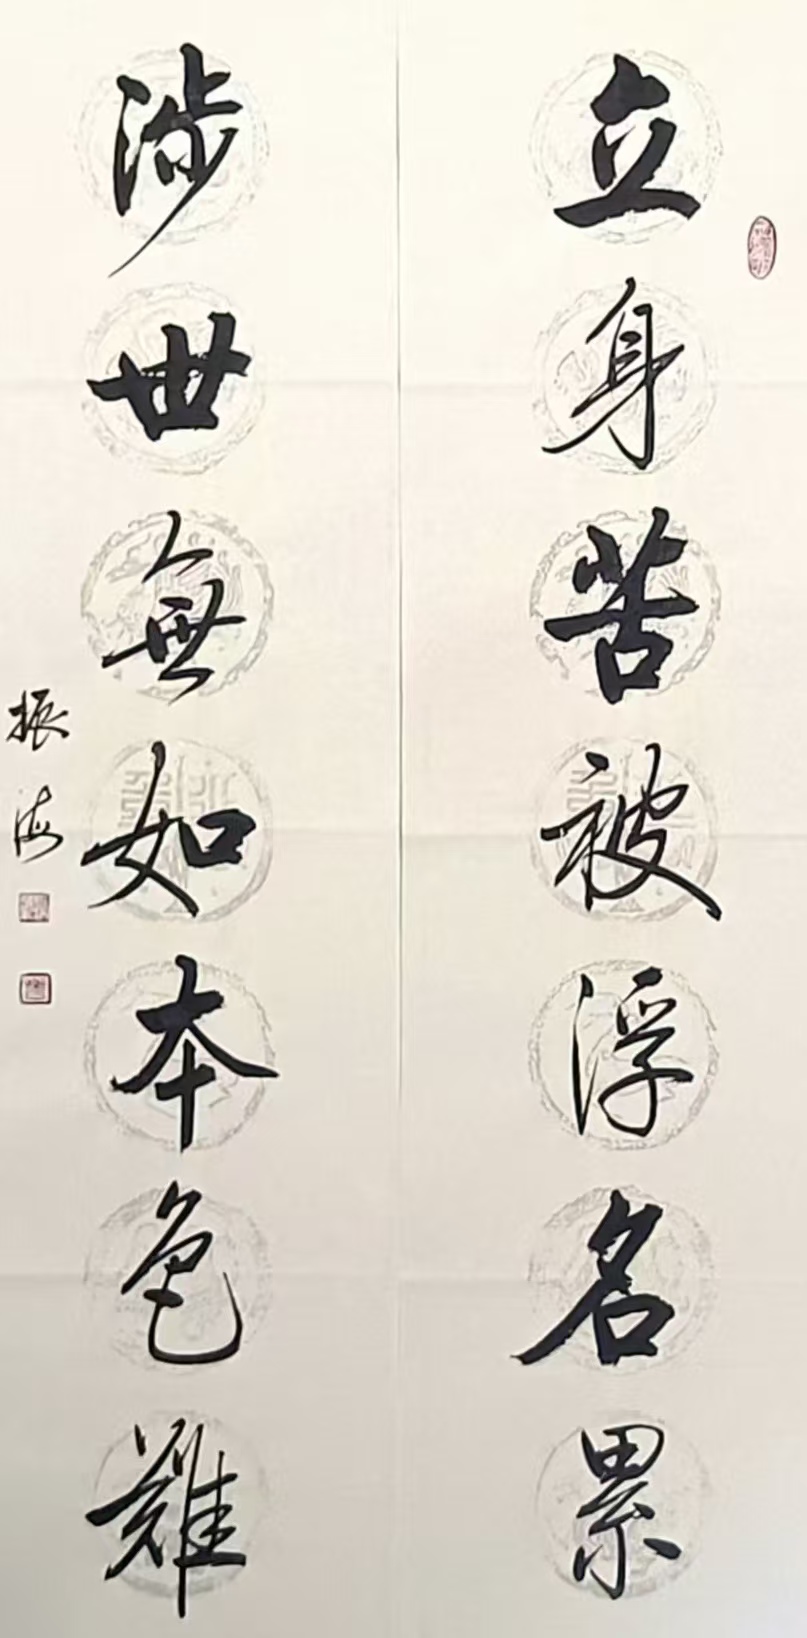 立身苦被浮名累
涉世無如本色難
振海